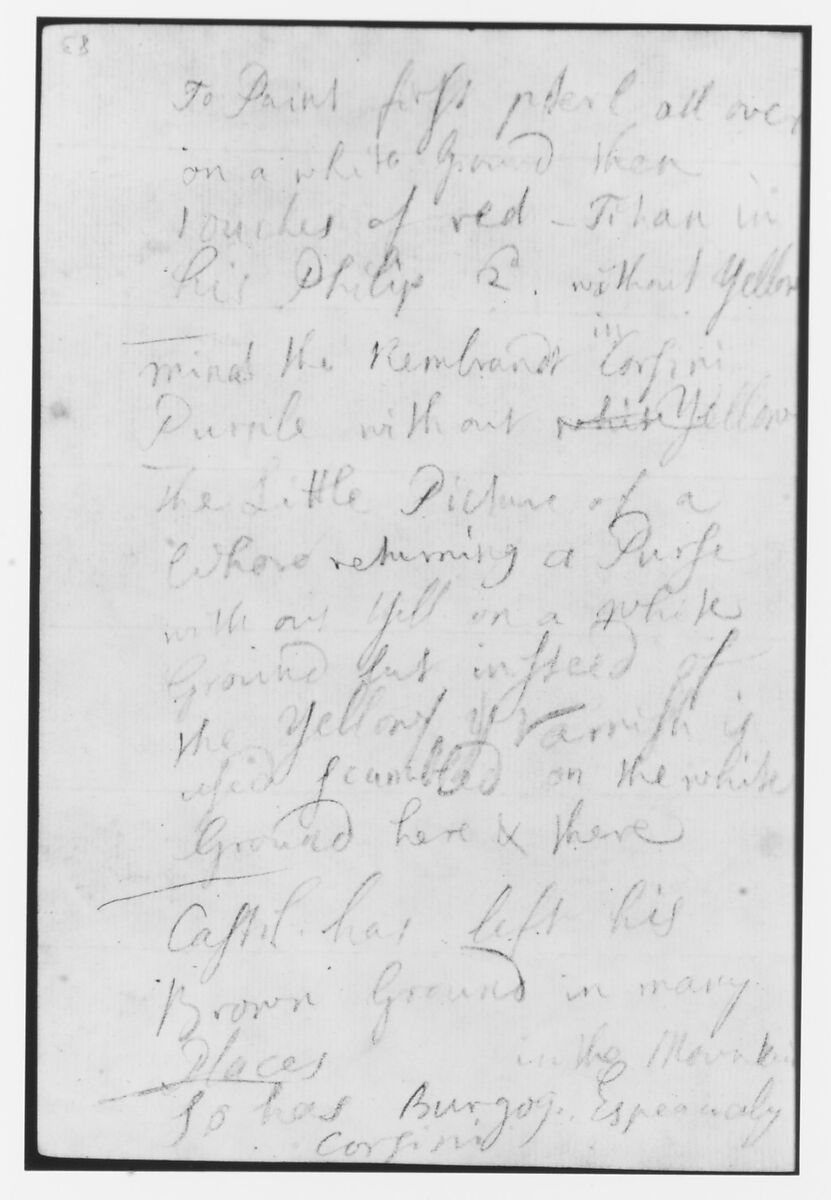 83
To Paint first perl all over
on a white Ground then
touches of red - Titian in
his Philip 2d. without Yellow
mind the Rembrandt in Corsini
Purple without white Yellow
The Little Picture of a
Whore returning a Purse
with out Yell on a white
Ground but insteed of
the Yellow ye Varnish is
used Scumbled on the white
Ground here & there
Castil. has left his
Brown Ground in many
Places in the Mountain
So has Burgog. Especialy
Corsini